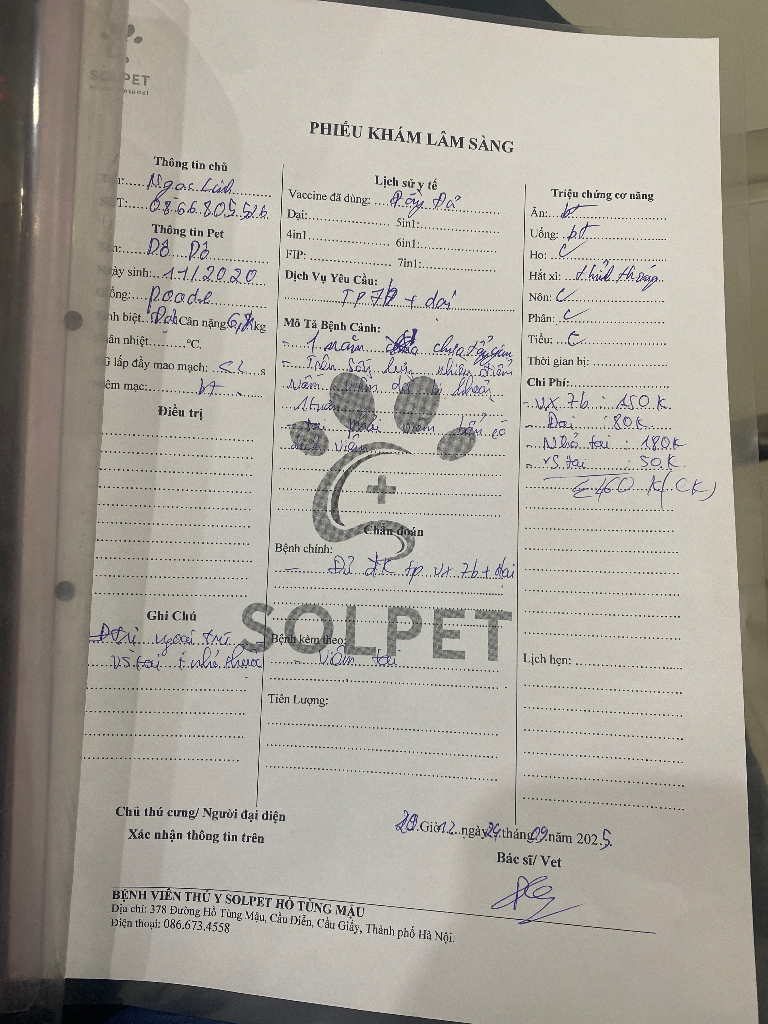 SOLPET
PHIẾU KHÁM LÂM SÀNG
Thông tin chủ
Ngọc Linh
T: 0866.805.526
Thông tin Pet
Dô Dô
ày sinh: 11/2020
ống: poodle
nh biệt: Cân nặng 6, kg
ân nhiệt: °C.
G lấp đầy mao mạch: <2 s
êm mạc: bt
Điều trị
Ghi Chú
Đtrị ngoại trú
vs tai + nhỏ thuốc
Lịch sử y tế
Vaccine đã dùng: Đầy Đủ
Dại: 5in1:
4in1 6in1:
FIP: 7in1:
Dịch Vụ Yêu Cầu:
TP 7b + dại
Mô Tả Bệnh Cảnh:
- 1 năm chưa tẩy giun
- Trên sống lưng nhiều điểm
nấm da
- tai phải bẩn có
dịch viêm
Chẩn đoán
Bệnh chính:
- Đủ đk tp vx 7b + dại
SOLPET
Bệnh kèm theo:
- Viêm tai
Tiên Lượng:
Triệu chứng cơ năng
Ăn: bt
Uống: bt
Ho: C
Hắt xì: thỉnh thoảng
Nôn: C
Phân: C
Tiểu: C
Thời gian bị:
Chi Phí:
- vx 7b : 150K
- Dại : 80K
- Nhỏ tai : 180K
- vs tai : 50K
460K (CK)
Lịch hẹn:
Chủ thú cưng/ Người đại diện
Xác nhận thông tin trên
20 Giờ 12 ngày 24 tháng 09 năm 2025
Bác sĩ/ Vet
BỆNH VIỆN THÚ Y SOLPET HỒ TÙNG MẬU
Địa chỉ: 378 Đường Hồ Tùng Mậu, Cầu Diễn, Cầu Giấy, Thành phố Hà Nội.
Điện thoại: 086.673.4558